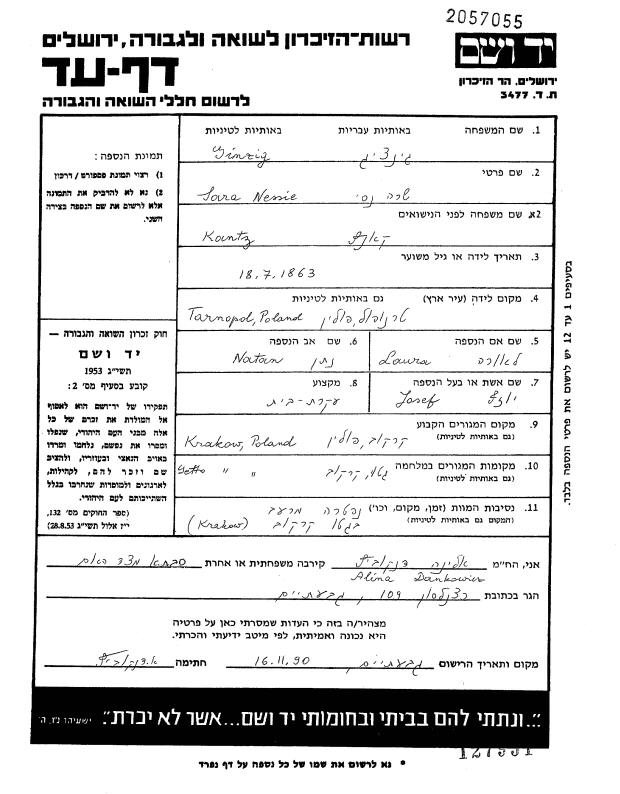 2057055
רשות-הזיכרון לשואה ולגבורה, ירושלים
יד ושם
דף-עד
ירושלים, הר הזיכרון
ת. ד. 3477
לרשום חללי השואה והגבורה
באותיות לטיניות
באותיות עבריות
1. שם המשפחה
Ginzig
גינציג
2. שם פרטי
Sara Nessie
שרה נסי
2א. שם משפחה לפני הנישואים
Kantz
3. תאריך לידה או גיל משוער
18.7.1863
4. מקום לידה (עיר ארץ) גם באותיות לטיניות
Tarnopol, Poland
טרנופול, פולין
5. שם אם הנספה
Laura
לאורה
6. שם אב הנספה
Natan
נתן
7. שם אשת או בעל הנספה
Josef
יוזף
8. מקצוע
עקרת-בית
9. מקום המגורים הקבוע
(גם באותיות לטיניות)
Krakow, Poland
קרקוב, פולין
10. מקומות המגורים במלחמה
(גם באותיות לטיניות)
Getto " "
גטו, קרקוב
11. נסיבות המוות (זמן, מקום, וכו')
(המקום גם באותיות לטיניות)
נפטרה מרעב
בגטו קרקוב
(Krakow)
תמונת הנספה:
1) רצוי תמונת פספורט/דרכון
2) נא לא להדביק את התמונה
אלא לרשום את שם הנספה בצידה
השני.
חוק זכרון השואה והגבורה —
יד ושם
תשי"ג 1953
קובע בסעיף מס' 2:
תפקידו של יד-ושם הוא לאסוף
אל המולדת את זכרם של כל
אלה מבני העם היהודי, שנפלו
ומסרו את נפשם, נלחמו ומרדו
באויב הנאצי ובעוזריו, ולהציב
שם וזכר להם, לקהילות,
לארגונים ולמוסדות שנחרבו בגלל
השתייכותם לעם היהודי.
(ספר החוקים מס' 132,
י"ז אלול תשי"ג 28.8.53)
בסעיפים 1 עד 12 יש לרשום את פרטי הנספה בלבד.
אני, הח"מ אלינה דנקוביץ קירבה משפחתית או אחרת סבתא מצד האם
Alina Dankowicz
הגר בכתובת 109, גבעתיים
מצהיר/ה בזה כי העדות שמסרתי כאן על פרטיה
היא נכונה ואמיתית, לפי מיטב ידיעתי והכרתי.
מקום ותאריך הרישום גבעתיים, 16.11.90 חתימה א.דנקוביץ
"...ונתתי להם בביתי ובחומותי יד ושם...אשר לא יכרת". ישעיהו נ"ו, ה'
* נא לרשום את שמו של כל נספה על דף נפרד